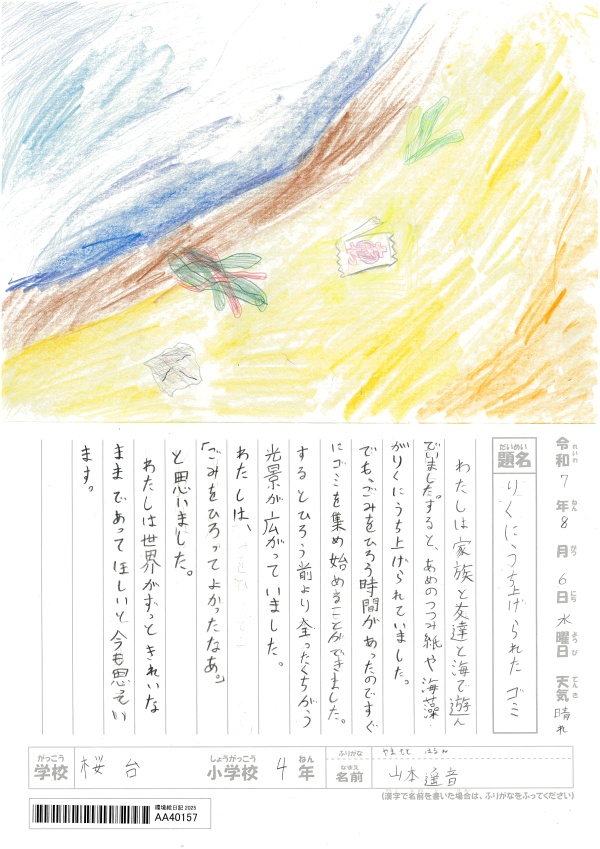 令和7年8月6日水曜日 天気晴れ
れいわ ねん がつ にち ようび てんき
だいめい
題名 りくにうち上げられたゴミ
わたしは家族と友達と海で遊ん
でいました。すると、あめのつつみ紙や海藻
がりくにうち上げられていました。
でも、ごみをひろう時間があったのですぐ
にゴミを集め始めることができました。
するとひろう前より全ったくちがう
光景が広がっていました。
わたしは、
「ごみをひろってよかったなあ。」
と思いました。
わたしは世界がずっときれいな
ままであってほしいと今も思ってい
ます。
がっこう しょうがっこう ねん
学校 桜台 小学校 4年
ふりがな やまもと はるね
なまえ
名前 山本遥音
(漢字で名前を書いた場合は、ふりがなをふってください)
環境絵日記 2025
AA40157